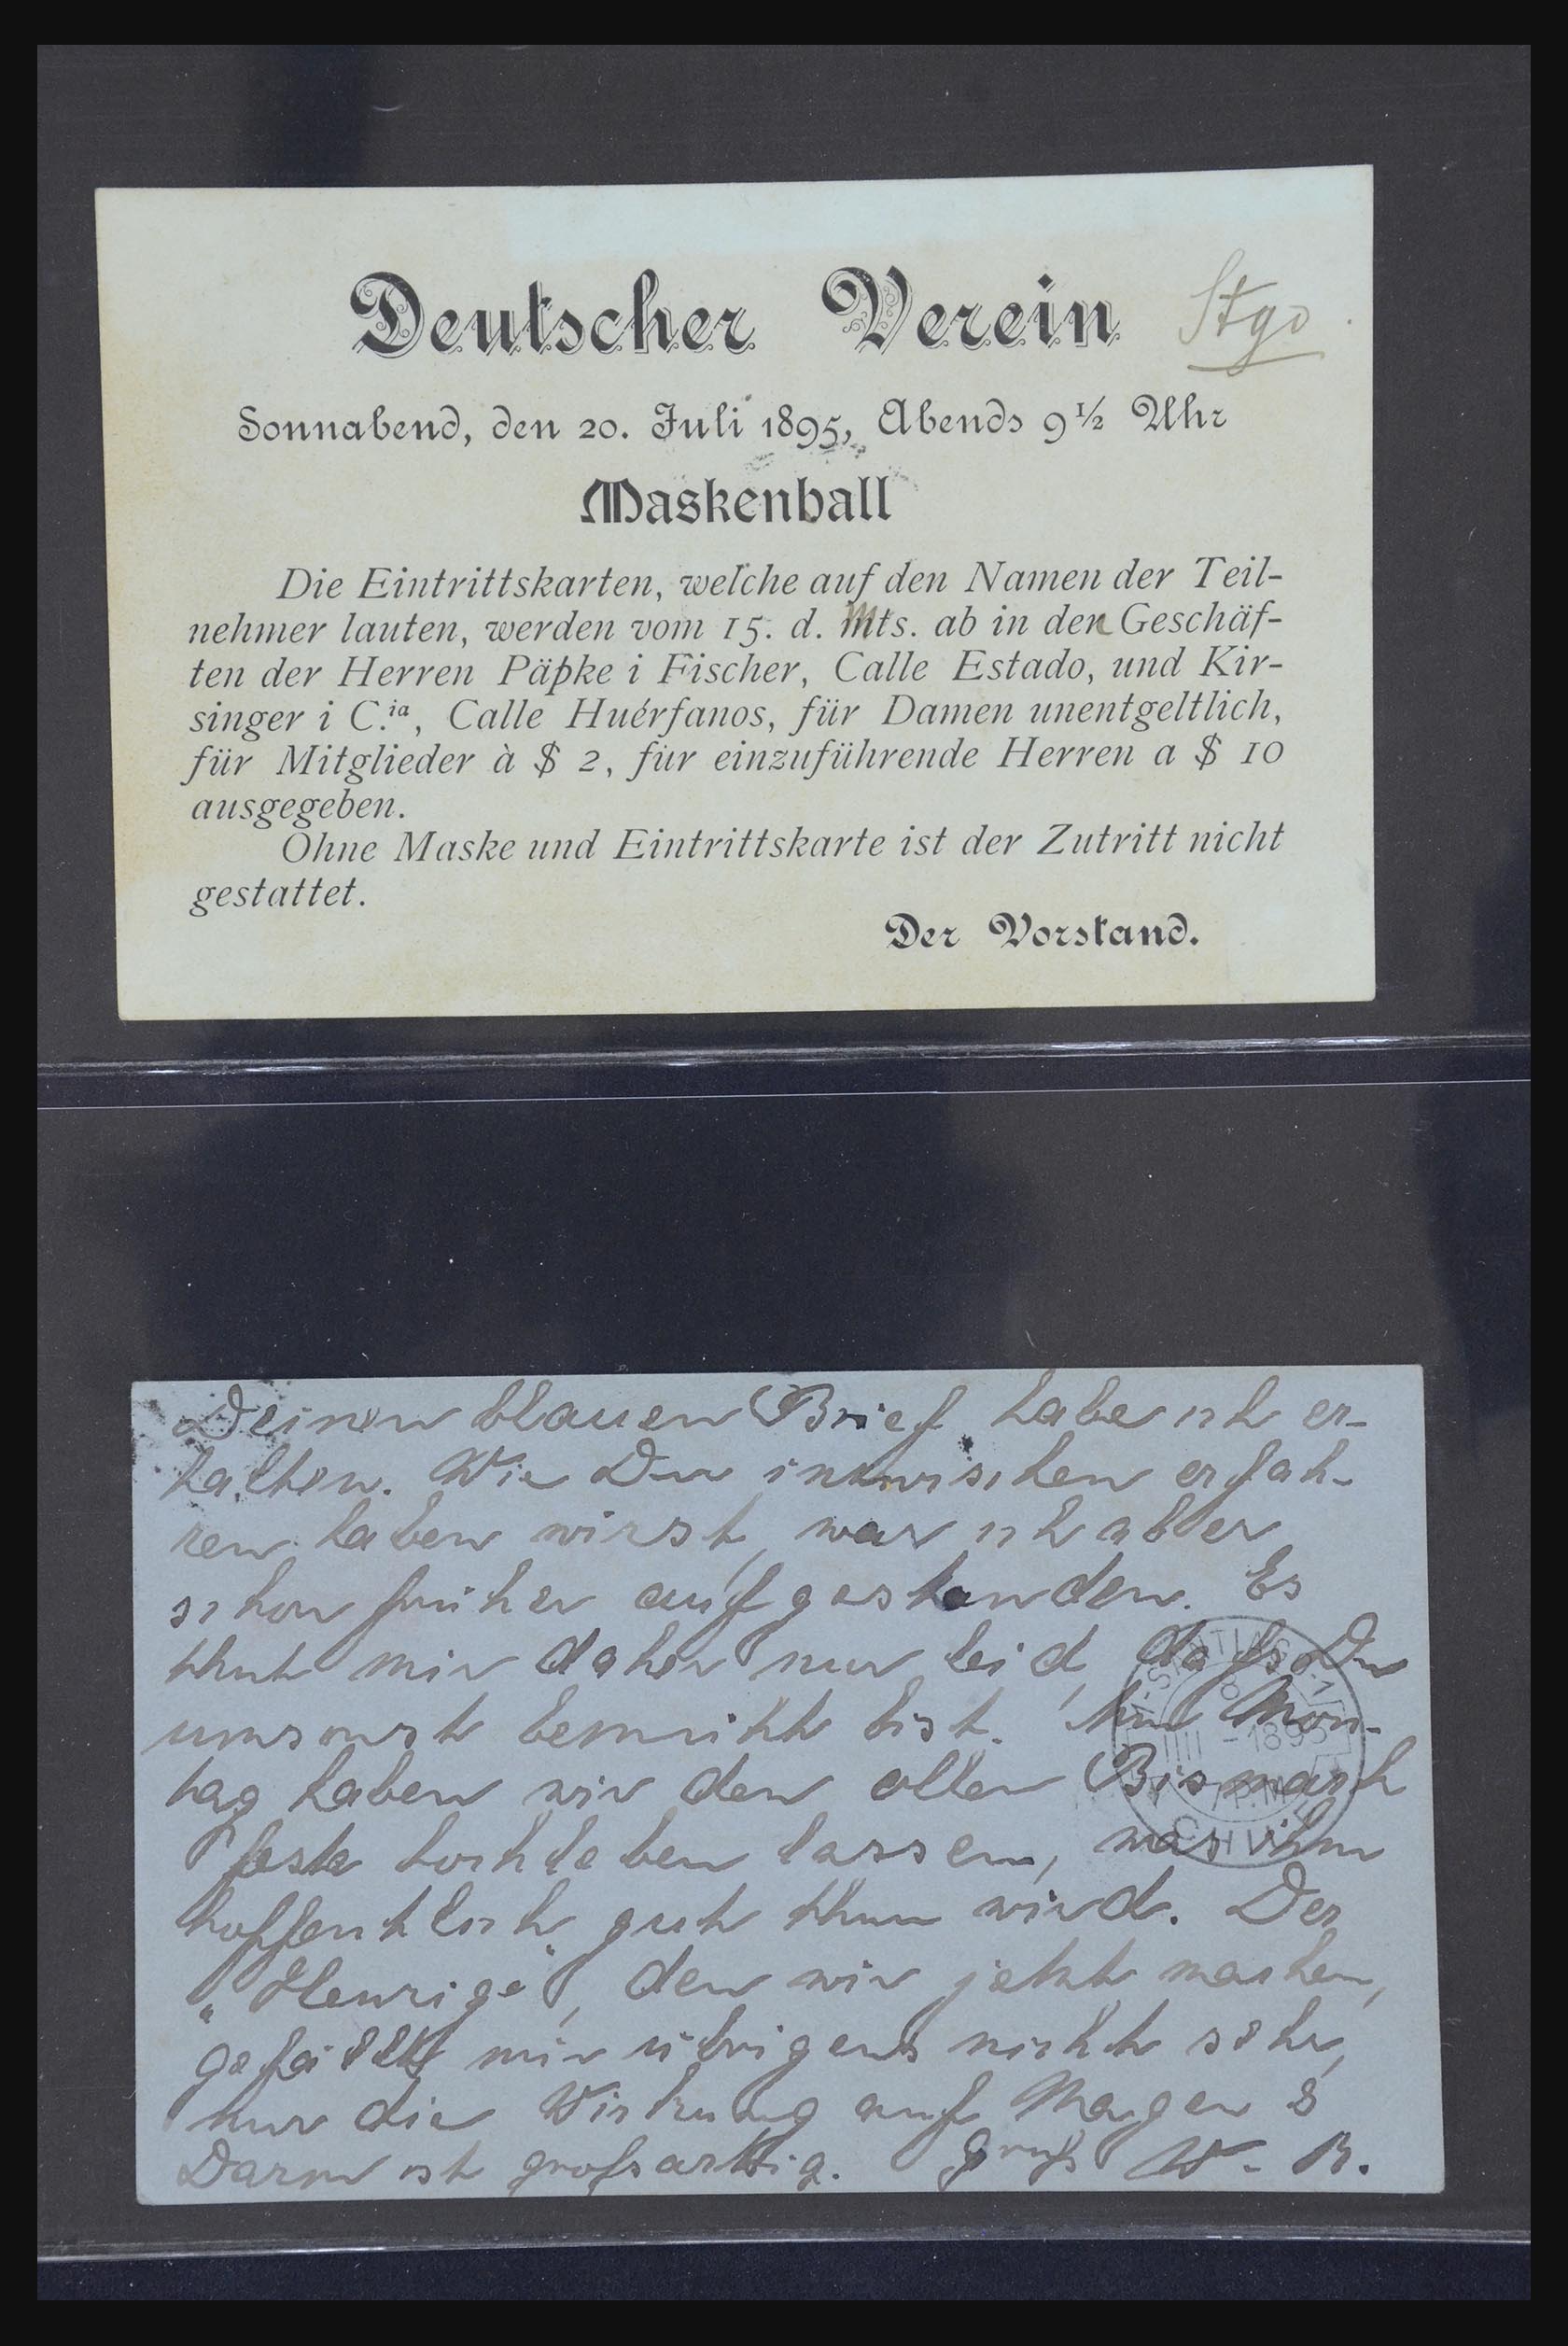 Deutscher Verein Stgo
Sonnabend, den 20. Juli 1895, Abends 9 1/2 Uhr
Maskenball
Die Eintrittskarten, welche auf den Namen der Teil-
nehmer lauten, werden vom 15. d. Mts. ab in den Geschäf-
ten der Herren Päpke i Fischer, Calle Estado, und Kir-
singer i C.ia, Calle Huérfanos, für Damen unentgeltlich,
für Mitglieder à $ 2, für einzuführende Herren a $ 10
ausgegeben.
Ohne Maske und Eintrittskarte ist der Zutritt nicht
gestattet.
Der Vorstand.
Deinen blauen Brief habe ich er-
halten. Wie Du inzwischen erfah-
ren haben wirst, war ich aber
schon früher aufgestanden. Es
thut mir daher nur leid, dafs Du
umsonst bemüht bist. Am Mon-
tag haben wir den ollen Bismarck
feste hochleben lassen, was ihm
hoffentlich gut thun wird. Der
"Heurige", den wir jetzt machen,
gefällt mir übrigens nicht sehr,
nur die Wirkung auf Magen &
Darm ist grofsartig. Grufs W. R.
1895
CHILE